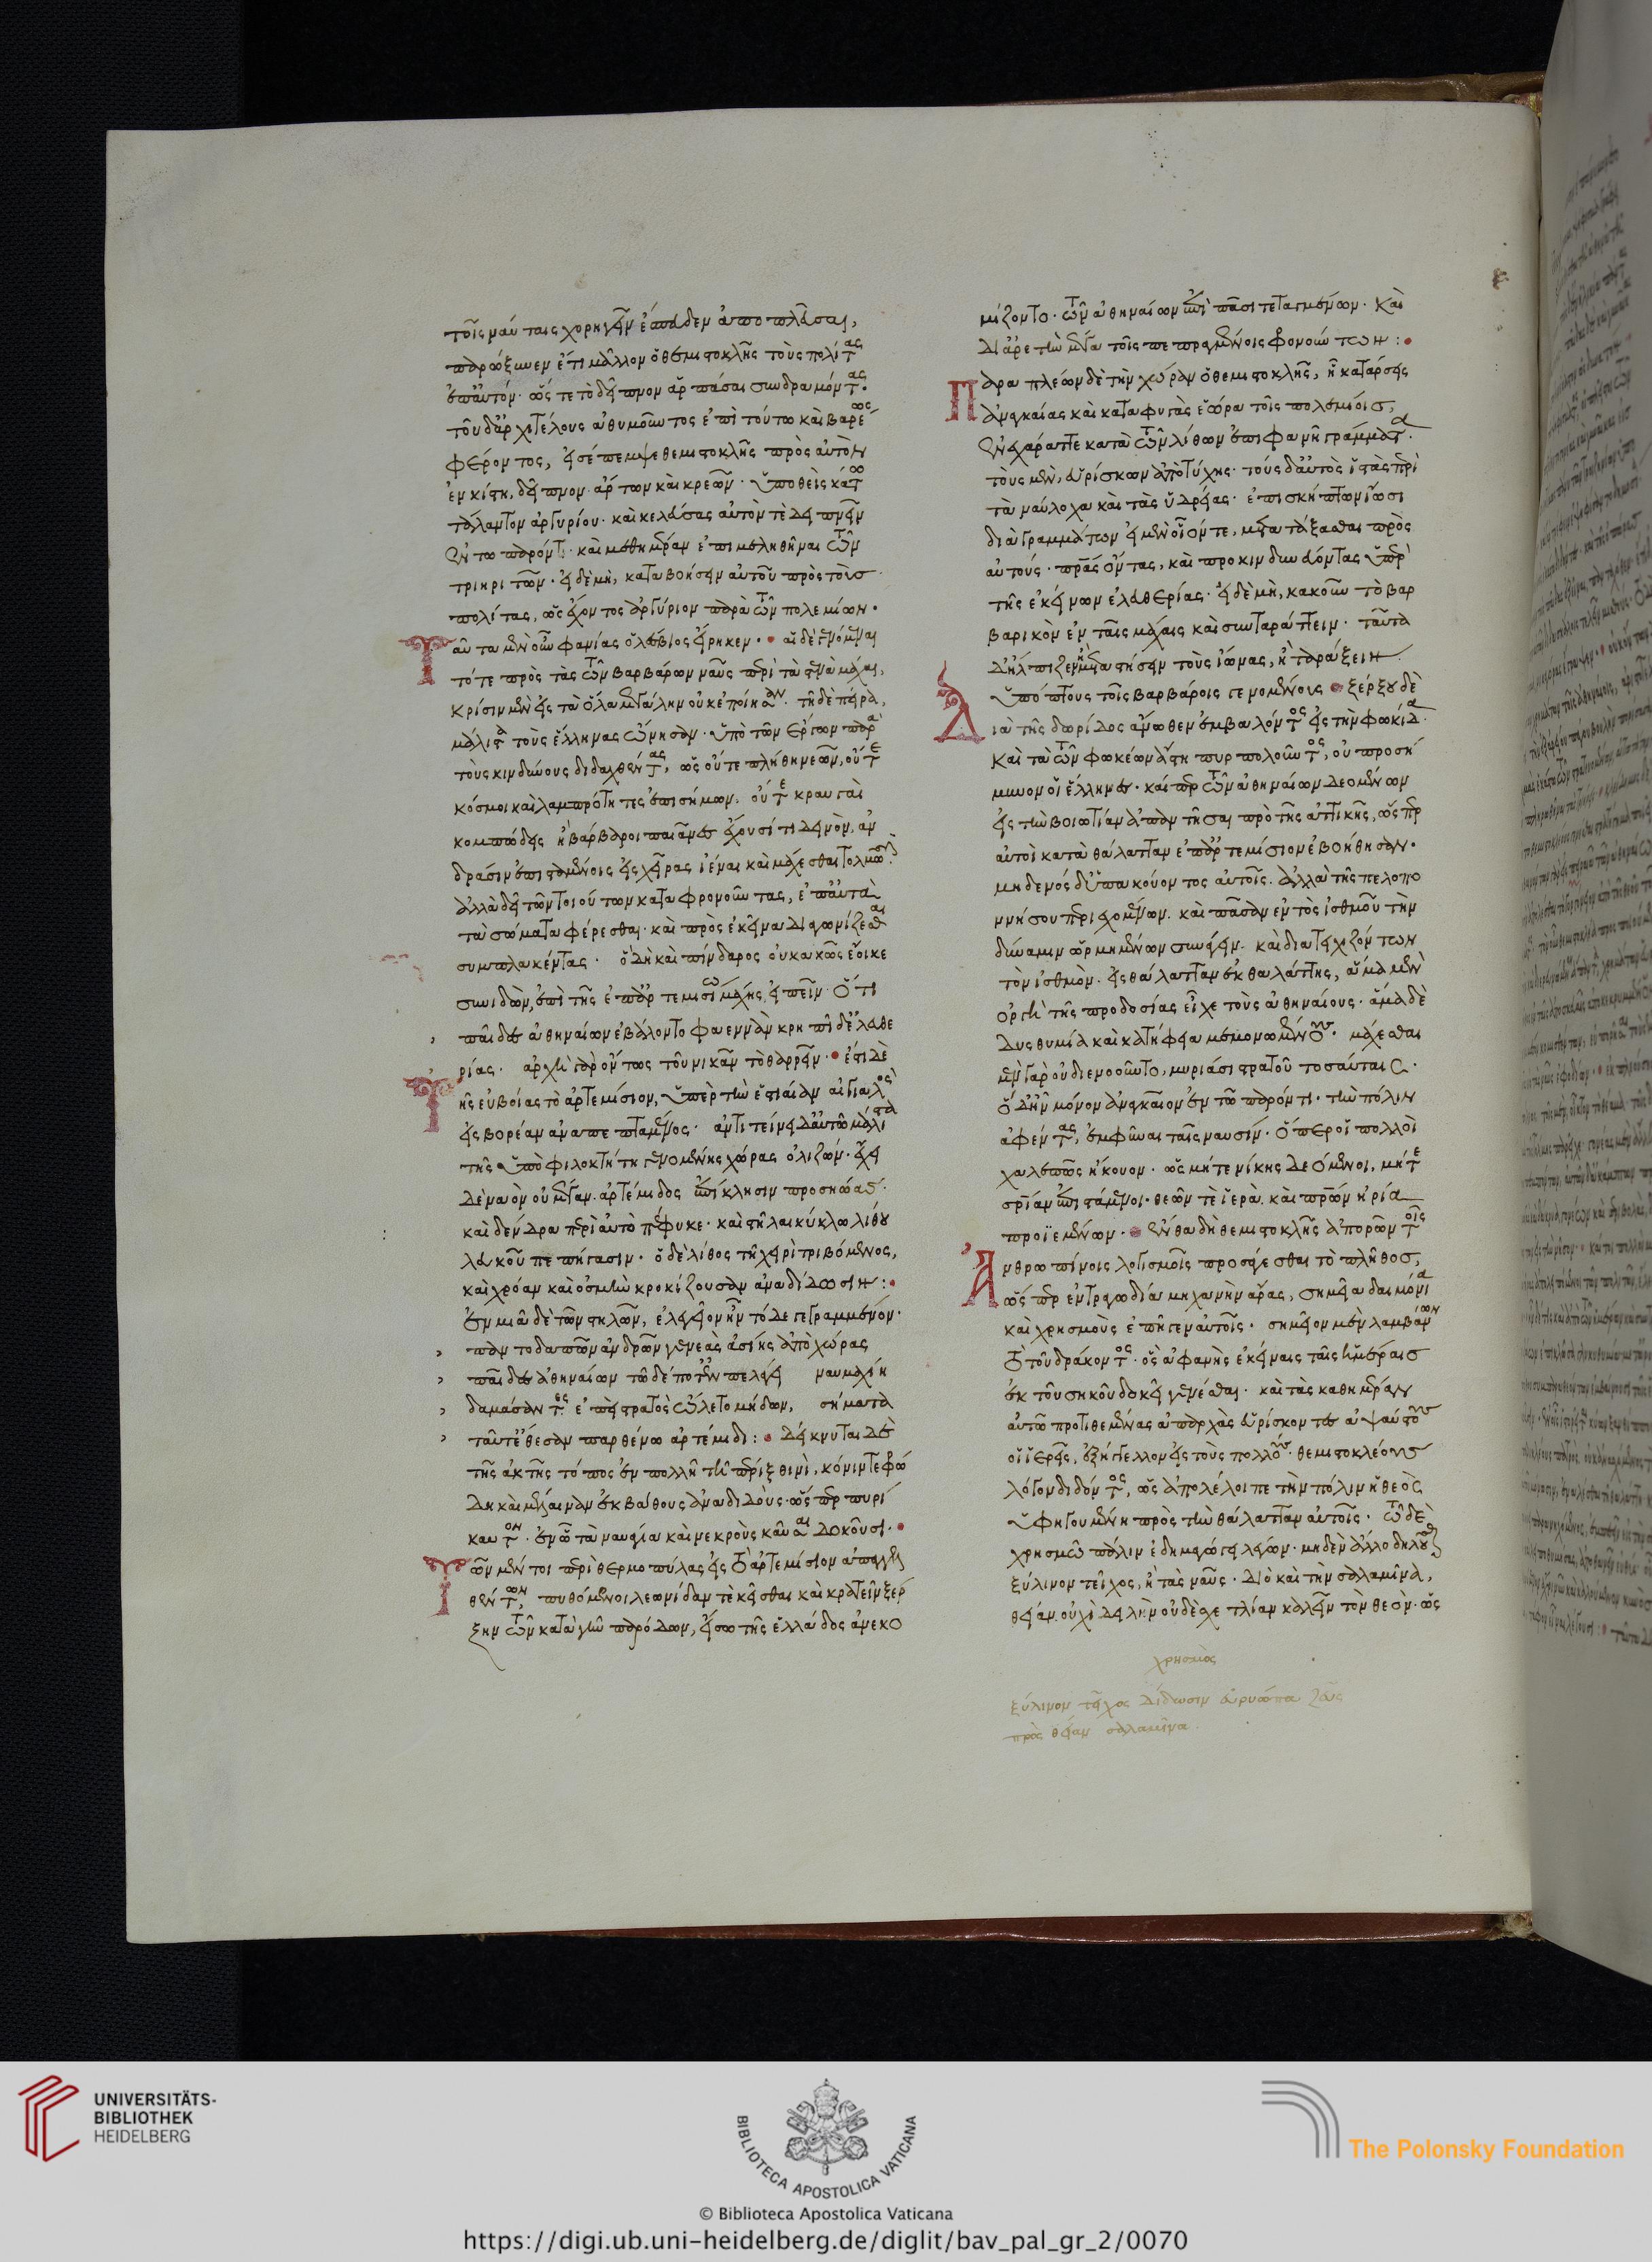 τοῖς ναύταις χορηγεῖν ἔσπευδεν ἀποπλεῦσαι,
παρώξυνεν ἔτι μᾶλλον ὁ θεμιστοκλῆς τοὺς πολίτας
ἐπ' αὐτόν. ὥστε τὸ δεῖπνον ἁρπάσαι συνδραμόντας.
τοῦ δ' ἀρχιτέλους ἀθυμοῦντος ἐπὶ τούτω καὶ βαρέως
φέροντος, εἰσέπεμψε θεμιστοκλῆς πρὸς αὐτὸν
ἐν κίστη, δεῖπνον ἄρτων καὶ κρεῶν. ὑποθεὶς κάτω
τάλαντον ἀργυρίου. καὶ κελεύσας αὐτόν τε δειπνεῖν
ἐν τω παρόντι. καὶ μεθημέραν ἐπιμεληθῆναι τῶν
τριηριτῶν. εἰ δὲ μὴ, καταβοήσειν αὐτοῦ πρὸς τοὺς
πολίτας, ὡς ἔχοντος ἀργύριον παρὰ τῶν πολεμίων.
Ταῦτα μὲν οὖν φανίας ὁ λέσβιος εἴρηκεν. αἱ δὲ γενόμεναι
τότε πρὸς τὰς τῶν βαρβάρων ναῦς περὶ τὰ στενὰ μάχαι,
κρίσιν μὲν εἰς τὰ ὅλα μεγάλην οὐκ ἐποίησαν. τῇ δὲ πείρα,
μάλιστα τοὺς ἕλληνας ὤνησαν. ὑπὸ τῶν ἔργων παρὰ
τοὺς κινδύνους διδαχθέντας, ὡς οὔτε πλήθη νεῶν, οὔτε
κόσμοι καὶ λαμπρότητες ἐπισήμων. οὔτε κραυγαὶ
κομπώδεις ἢ βάρβαροι παιᾶνες ἔχουσί τι δεινὸν, ἀν
δράσιν ἐπισταμένοις εἰς χεῖρας ἰέναι καὶ μάχεσθαι τολμῶσιν.
ἀλλὰ δεῖ τῶν τοιούτων καταφρονοῦντας, ἐπ' αὐτὰ
τὰ σώματα φέρεσθαι. καὶ πρὸς ἐκεῖνα διαγωνίζεσθαι
συμπλακέντας. ὃ δὴ καὶ πίνδαρος οὐ κακῶς ἔοικε
συνιδὼν, ἐπὶ τῆς ἐπ' ἀρτεμισίω μάχης εἰπεῖν. ὅτι
παῖδες ἀθηναίων ἐβάλοντο φαεννὰν κρηπῖδ' ἐλευθε
ρίας. ἀρχὴ γὰρ ὄντως τοῦ νικᾶν τὸ θαρρεῖν. ἔστι δὲ
Τῆς εὐβοίας τὸ ἀρτεμίσιον, ὑπὲρ τὴν ἑστίαιαν αἰγιαλὸς
εἰς βορέαν ἀναπεπταμένος. ἀντιτείνει δ' αὐτῶ μάλιστα
τῆς ὑπὸ φιλοκτήτη γενομένης χώρας ὀλιζών. ἔχει
δὲ ναὸν οὐ μέγαν. ἀρτέμιδος ἐπίκλησιν προσηώας.
καὶ δένδρα περὶ αὐτὸ πέφυκε. καὶ στῆλαι κύκλω λίθου
λευκοῦ πεπήγασιν. ὁ δὲ λίθος τῇ χειρὶ τριβόμενος,
καὶ χρόαν καὶ ὀσμὴν κροκίζουσαν ἀναδίδωσιν:
ἐν μιᾶ δὲ τῶν στηλῶν, ἐλεγεῖον ἦν τόδε γεγραμμένον.
παντοδαπῶν ἀνδρῶν γενεὰς ἀσίης ἀπὸ χώρας
παῖδες ἀθηναίων τῶδέ ποτ' ἐν πελάγει ναυμαχίη
δαμάσαντες. ἐπεὶ στρατὸς ὤλετο μήδων, σήματα
ταῦτ' ἔθεσαν παρθένω ἀρτέμιδι: δείκνυται δὲ
τῆς ἀκτῆς τόπος ἐν πολλῇ τῇ πέριξ θινὶ, κόνιν τεφρώ
δη καὶ μέλαιναν ἐκ βάθους ἀναδιδοὺς. ὥσπερ πυρί
καυστον. ἐν ᾧ τὰ ναυάγια καὶ νεκροὺς καῦσαι δοκοῦσι.
Τῶν μέντοι περὶ θερμοπύλας εἰς τὸ ἀρτεμίσιον ἀπαγγελ
θέντων, πυθόμενοι λεωνίδαν τε κεῖσθαι καὶ κρατεῖν ξέρ
ξην τῶν κατὰ γῆν παρόδων, εἴσω τῆς ἑλλάδος ἀνεκο
μίζοντο. τῶν ἀθηναίων ἐπὶ πᾶσι τεταγμένων. καὶ
δι' ἀρετὴν μέγα τοῖς πεπραγμένοις φρονούντων:
Παραπλέων δὲ τὴν χώραν ὁ θεμιστοκλῆς, ᾗ κατάρσεις
ἀναγκαίας καὶ καταφυγὰς ἑώρα τοῖς πολεμίοις,
ἐνεχάραττε κατὰ τῶν λίθων ἐπιφανῆ γράμματα.
τοὺς μὲν, εὑρίσκων ἀπὸ τύχης. τοὺς δ' αὐτὸς ἱστὰς περὶ
τὰ ναύλοχα καὶ τὰς ὑδρείας. ἐπισκήπτων ἴωσι
διὰ γραμμάτων εἰ μὲν οἷόν τε, μετατάξασθαι πρὸς
αὐτούς. πατέρας ὄντας, καὶ προκινδυνεύοντας ὑπὲρ
τῆς ἐκείνων ἐλευθερίας. εἰ δὲ μὴ, κακοῦν τὸ βαρ
βαρικὸν ἐν ταῖς μάχαις καὶ συνταράττειν. ταῦτα
δ' ἤλπιζεν ἢ μεταστήσειν τοὺς ἴωνας, ἢ ταράξειν
ὑπόπτους τοῖς βαρβάροις γενομένοις ξέρξου δὲ
Διὰ τῆς δωρίδος ἄνωθεν ἐμβαλόντος εἰς τὴν φωκίδα.
καὶ τὰ τῶν φωκέων ἄστη πυρπολοῦντος, οὐ προσή
μυνον οἱ ἕλληνες. καίπερ τῶν ἀθηναίων δεομένων
εἰς τὴν βοιωτίαν ἀπαντῆσαι πρὸ τῆς ἀττικῆς, ὥσπερ
αὐτοὶ κατὰ θάλατταν ἐπ' ἀρτεμίσιον ἐβοήθησαν.
μηδενὸς δ' ὑπακούοντος αὐτοῖς. ἀλλὰ τῆς πελοπο
ννήσου περιεχομένων. καὶ πᾶσαν ἐντὸς ἰσθμοῦ τὴν
δύναμιν ὡρμημένων συνάγειν. καὶ διατειχιζόντων
τὸν ἰσθμὸν. εἰς θάλατταν ἐκ θαλάττης, ἅμα μὲν
ὀργὴ τῆς προδοσίας εἶχε τοὺς ἀθηναίους. ἅμα δὲ
δυσθυμία καὶ κατήφεια μεμονωμένους. μάχεσθαι
μὲν γὰρ οὐ διενοοῦντο, μυριάσι στρατοῦ τοσαύταις.
ὃ δ' ἦν μόνον ἀναγκαῖον ἐν τῶ παρόντι. τὴν πόλιν
ἀφέντας, ἐμφῦναι ταῖς ναυσίν. ὅπερ οἱ πολλοὶ
χαλεπῶς ἤκουον. ὡς μήτε νίκης δεόμενοι, μήτε
σωτηρίαν ἐπιστάμενοι. θεῶν τὲ ἱερὰ. καὶ πατέρων ἠρία
προϊεμένων. ἔνθα δὴ θεμιστοκλῆς ἀπορῶν τοῖς
Ἀνθρωπίνοις λογισμοῖς προσάγεσθαι τὸ πλῆθος,
ὥσπερ ἐν τραγωδία μηχανὴν ἄρας, σημεῖα δαιμόνια
καὶ χρησμοὺς ἐπῆγεν αὐτοῖς. σημεῖον μὲν λαμβάνων
τὸ τοῦ δράκοντος. ὃς ἀφανὴς ἐκείναις ταῖς ἡμέραις
ἐκ τοῦ σηκοῦ δοκεῖ γενέσθαι. καὶ τὰς καθημέραν
αὐτῶ προτιθεμένας ἀπαρχὰς εὑρίσκοντες ἀψαύστους
οἱ ἱερεῖς, ἐξήγγελλον εἰς τοὺς πολλούς. θεμιστοκλέους
λόγον διδόντος, ὡς ἀπολέλοιπε τὴν πόλιν ἡ θεὸς
ὑφηγουμένη πρὸς τὴν θάλατταν αὐτοῖς. τῶ δὲ
χρησμῶ πάλιν ἐδημαγώγει λέγων. μηδὲν ἄλλο δηλοῦσθαι
ξύλινον τεῖχος, ἢ τὰς ναῦς. διὸ καὶ τὴν σαλαμῖνα,
θείαν. οὐχὶ δειλὴν οὐδὲ σχετλίαν καλεῖν τὸν θεὸν. ὡς
χρησμὸς
ξύλινον τεῖχος δίδωσιν εὐρυόπα ζεὺς
πρὸς θείαν σαλαμῖνα.
UNIVERSITÄTS-
BIBLIOTHEK
HEIDELBERG
BIBLIOTECA APOSTOLICA VATICANA
The Polonsky Foundation
© Biblioteca Apostolica Vaticana
https://digi.ub.uni-heidelberg.de/diglit/bav_pal_gr_2/0070